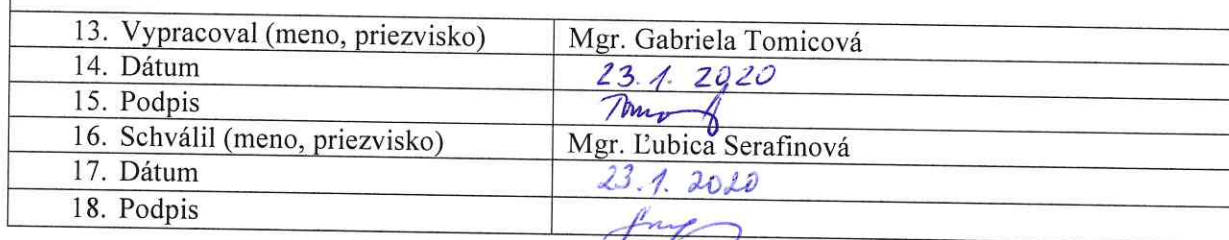 13. Vypracoval (meno, priezvisko) Mgr. Gabriela Tomicová
14. Dátum 23.1.2020
15. Podpis
16. Schválil (meno, priezvisko) Mgr. Ľubica Serafinová
17. Dátum 23.1.2020
18. Podpis